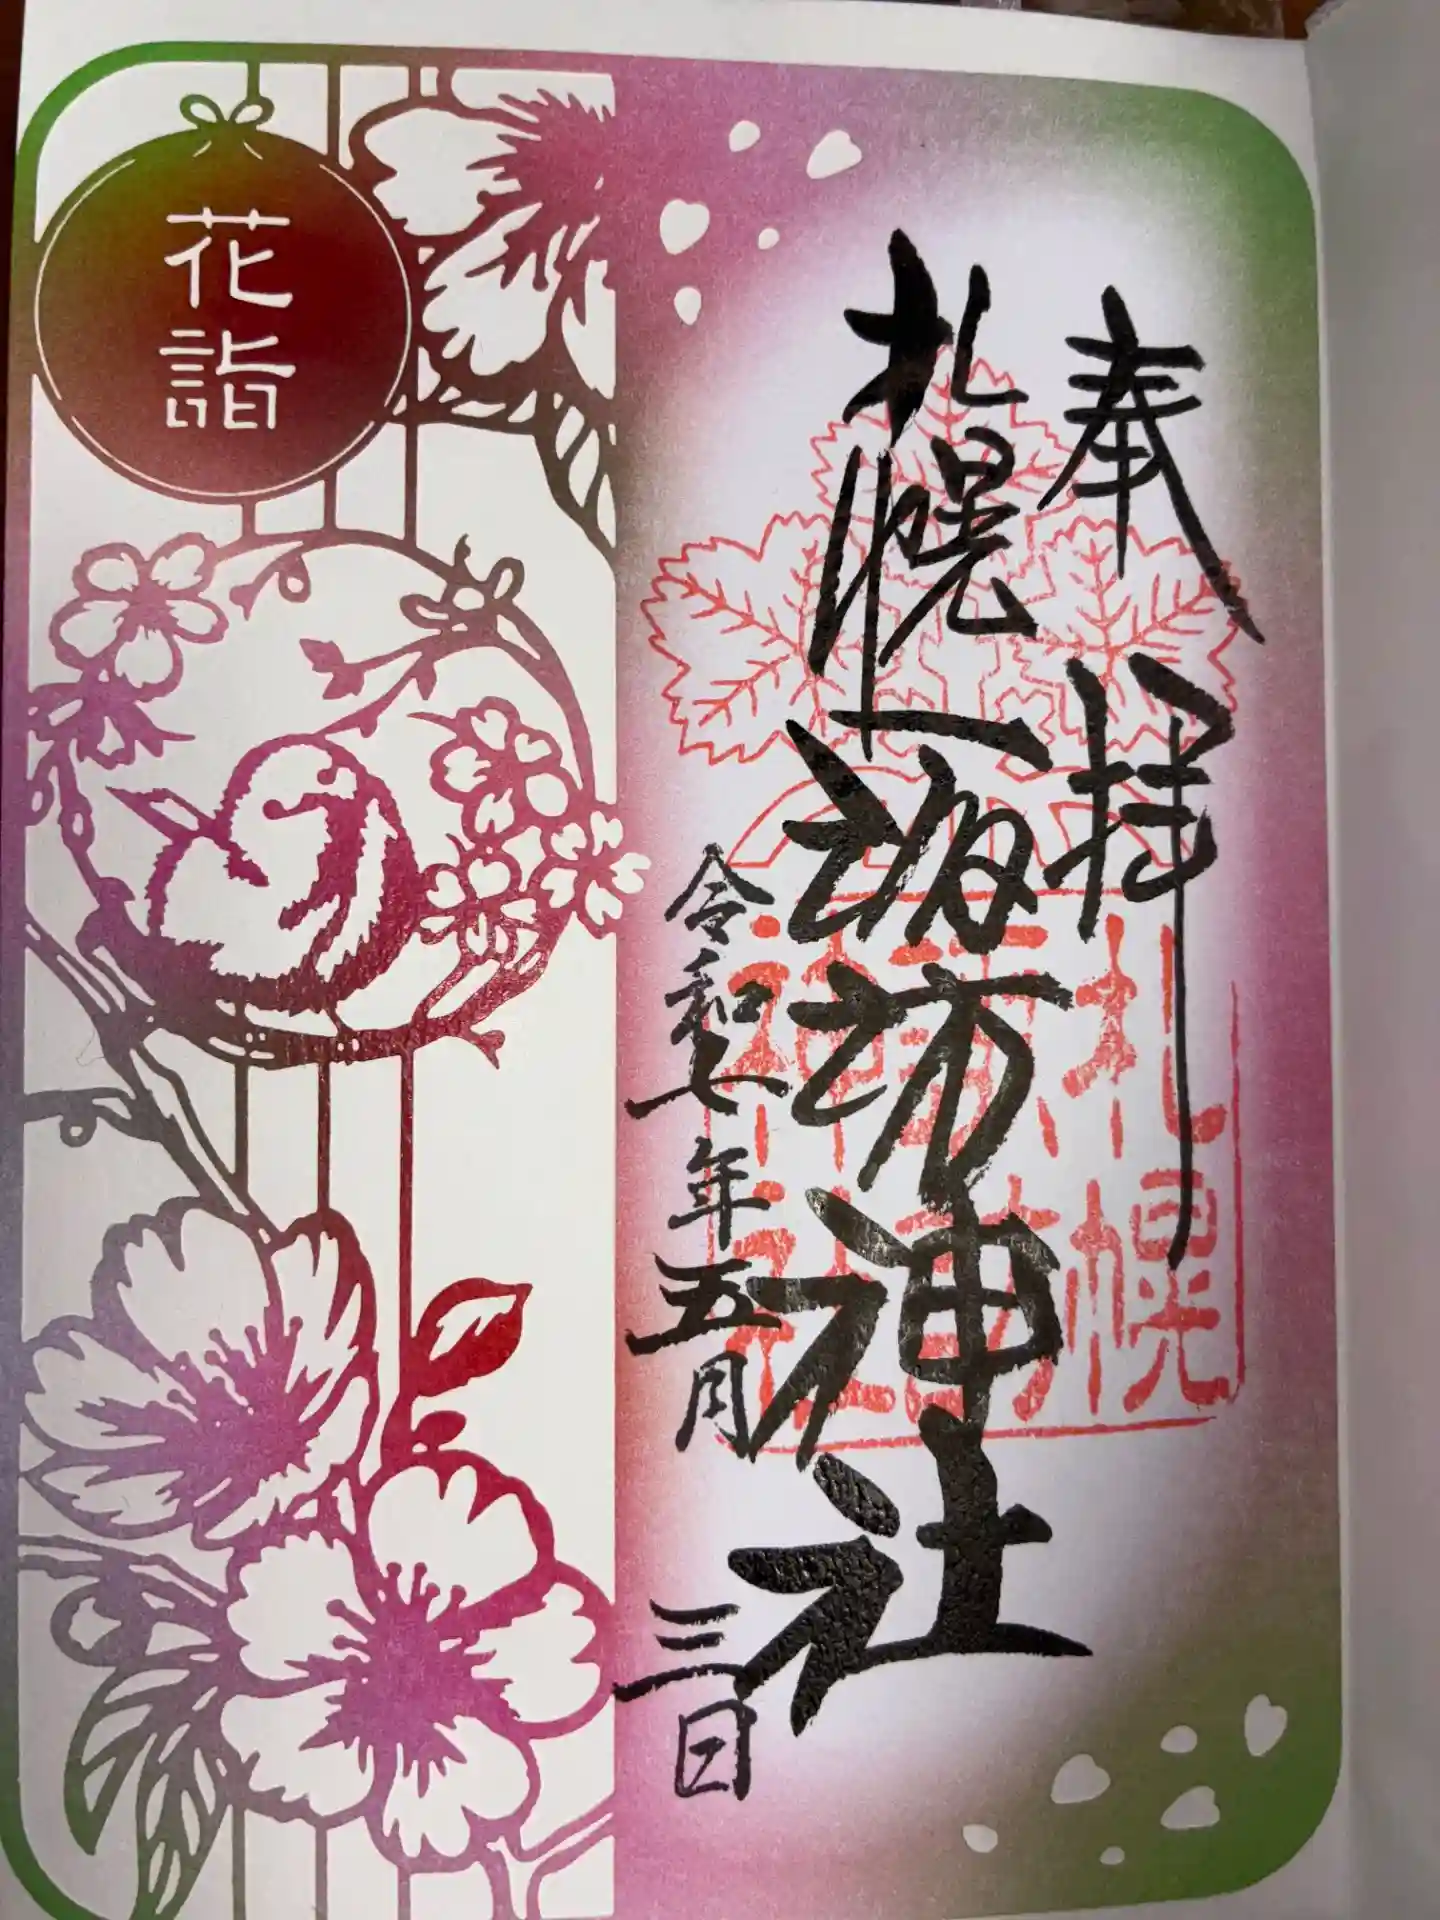 奉拝
札幌諏訪神社
令和七年五月三日
花詣
札幌
諏訪
神社